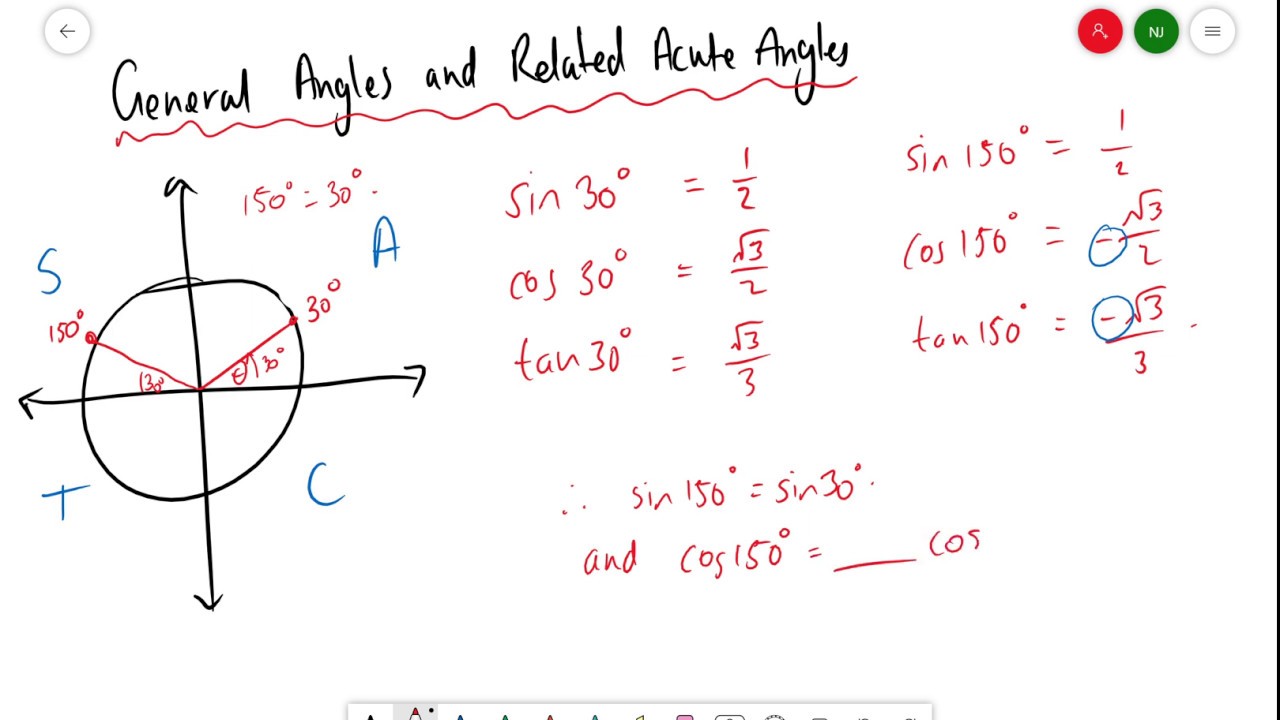 NJ
General Angles and Related Acute Angles
150° = 30°.
S
A
150°
30°
30°
θ 30°
T
C
sin 30° = 1/2
cos 30° = √3/2
tan 30° = √3/3
sin 150° = 1/2
cos 150° = -√3/2
tan 150° = -√3/3.
∴ sin 150° = sin 30°.
and cos 150° = ___ cos